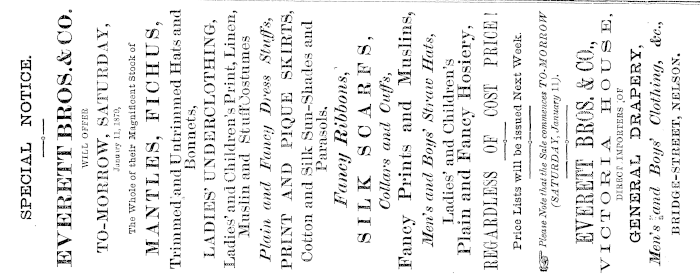 SPECIAL NOTICE.
EVERETT BROS. & CO.
WILL OFFER
TO-MORROW, SATURDAY,
January 11, 1879,
The Whole of their Magnificent Stock of
MANTLES, FICHUS,
Trimmed and Untrimmed Hats and
Bonnets,
LADIES' UNDERCLOTHING,
Ladies' and Children's Print, Linen,
Muslin and Stuff Costumes
Plain and Fancy Dress Stuffs,
PRINT AND PIQUE SKIRTS,
Cotton and Silk Sun-Shades and
Parasols,
Fancy Ribbons,
SILK SCARFS,
Collars and Cuffs,
Fancy Prints and Muslins,
Men's and Boys' Straw Hats,
Ladies' and Children's
Plain and Fancy Hosiery,
REGARDLESS OF COST PRICE!
Price Lists will be issued Next Week.
☞ Please Note that the Sale commences TO-MORROW
(SATURDAY, January 11).
EVERETT BROS. & CO.,
VICTORIA HOUSE,
DIRECT IMPORTERS OF
GENERAL DRAPERY,
Men's and Boys' Clothing, &c.,
BRIDGE-STREET, NELSON.